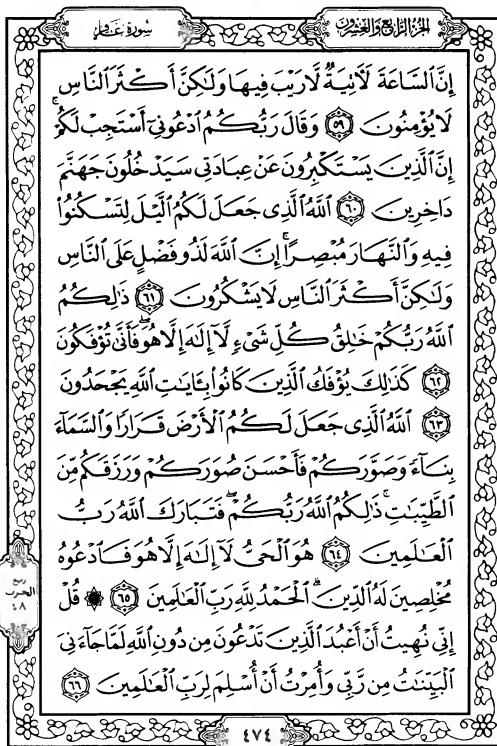 الجزء الرابع والعشرون
سورة غافر
إِنَّ ٱلسَّاعَةَ لَـَٔاتِيَةٌ لَّا رَيۡبَ فِيهَا وَلَٰكِنَّ أَكۡثَرَ ٱلنَّاسِ
لَا يُؤۡمِنُونَ ٥٩ وَقَالَ رَبُّكُمُ ٱدۡعُونِيٓ أَسۡتَجِبۡ لَكُمۡۚ
إِنَّ ٱلَّذِينَ يَسۡتَكۡبِرُونَ عَنۡ عِبَادَتِي سَيَدۡخُلُونَ جَهَنَّمَ
دَاخِرِينَ ٦٠ ٱللَّهُ ٱلَّذِي جَعَلَ لَكُمُ ٱلَّيۡلَ لِتَسۡكُنُواْ
فِيهِ وَٱلنَّهَارَ مُبۡصِرًاۚ إِنَّ ٱللَّهَ لَذُو فَضۡلٍ عَلَى ٱلنَّاسِ
وَلَٰكِنَّ أَكۡثَرَ ٱلنَّاسِ لَا يَشۡكُرُونَ ٦١ ذَٰلِكُمُ
ٱللَّهُ رَبُّكُمۡ خَٰلِقُ كُلِّ شَيۡءٖ لَّآ إِلَٰهَ إِلَّا هُوَۖ فَأَنَّىٰ تُؤۡفَكُونَ
٦٢ كَذَٰلِكَ يُؤۡفَكُ ٱلَّذِينَ كَانُواْ بِـَٔايَٰتِ ٱللَّهِ يَجۡحَدُونَ
٦٣ ٱللَّهُ ٱلَّذِي جَعَلَ لَكُمُ ٱلۡأَرۡضَ قَرَارٗا وَٱلسَّمَآءَ
بِنَآءٗ وَصَوَّرَكُمۡ فَأَحۡسَنَ صُوَرَكُمۡ وَرَزَقَكُم مِّنَ
ٱلطَّيِّبَٰتِۚ ذَٰلِكُمُ ٱللَّهُ رَبُّكُمۡۖ فَتَبَارَكَ ٱللَّهُ رَبُّ
ٱلۡعَٰلَمِينَ ٦٤ هُوَ ٱلۡحَيُّ لَآ إِلَٰهَ إِلَّا هُوَ فَٱدۡعُوهُ
مُخۡلِصِينَ لَهُ ٱلدِّينَۗ ٱلۡحَمۡدُ لِلَّهِ رَبِّ ٱلۡعَٰلَمِينَ ٦٥ ۞ قُلۡ
إِنِّي نُهِيتُ أَنۡ أَعۡبُدَ ٱلَّذِينَ تَدۡعُونَ مِن دُونِ ٱللَّهِ لَمَّا جَآءَنِيَ
ٱلۡبَيِّنَٰتُ مِن رَّبِّي وَأُمِرۡتُ أَنۡ أُسۡلِمَ لِرَبِّ ٱلۡعَٰلَمِينَ ٦٦
ربع
الحزب
٤٨
٤٧٤